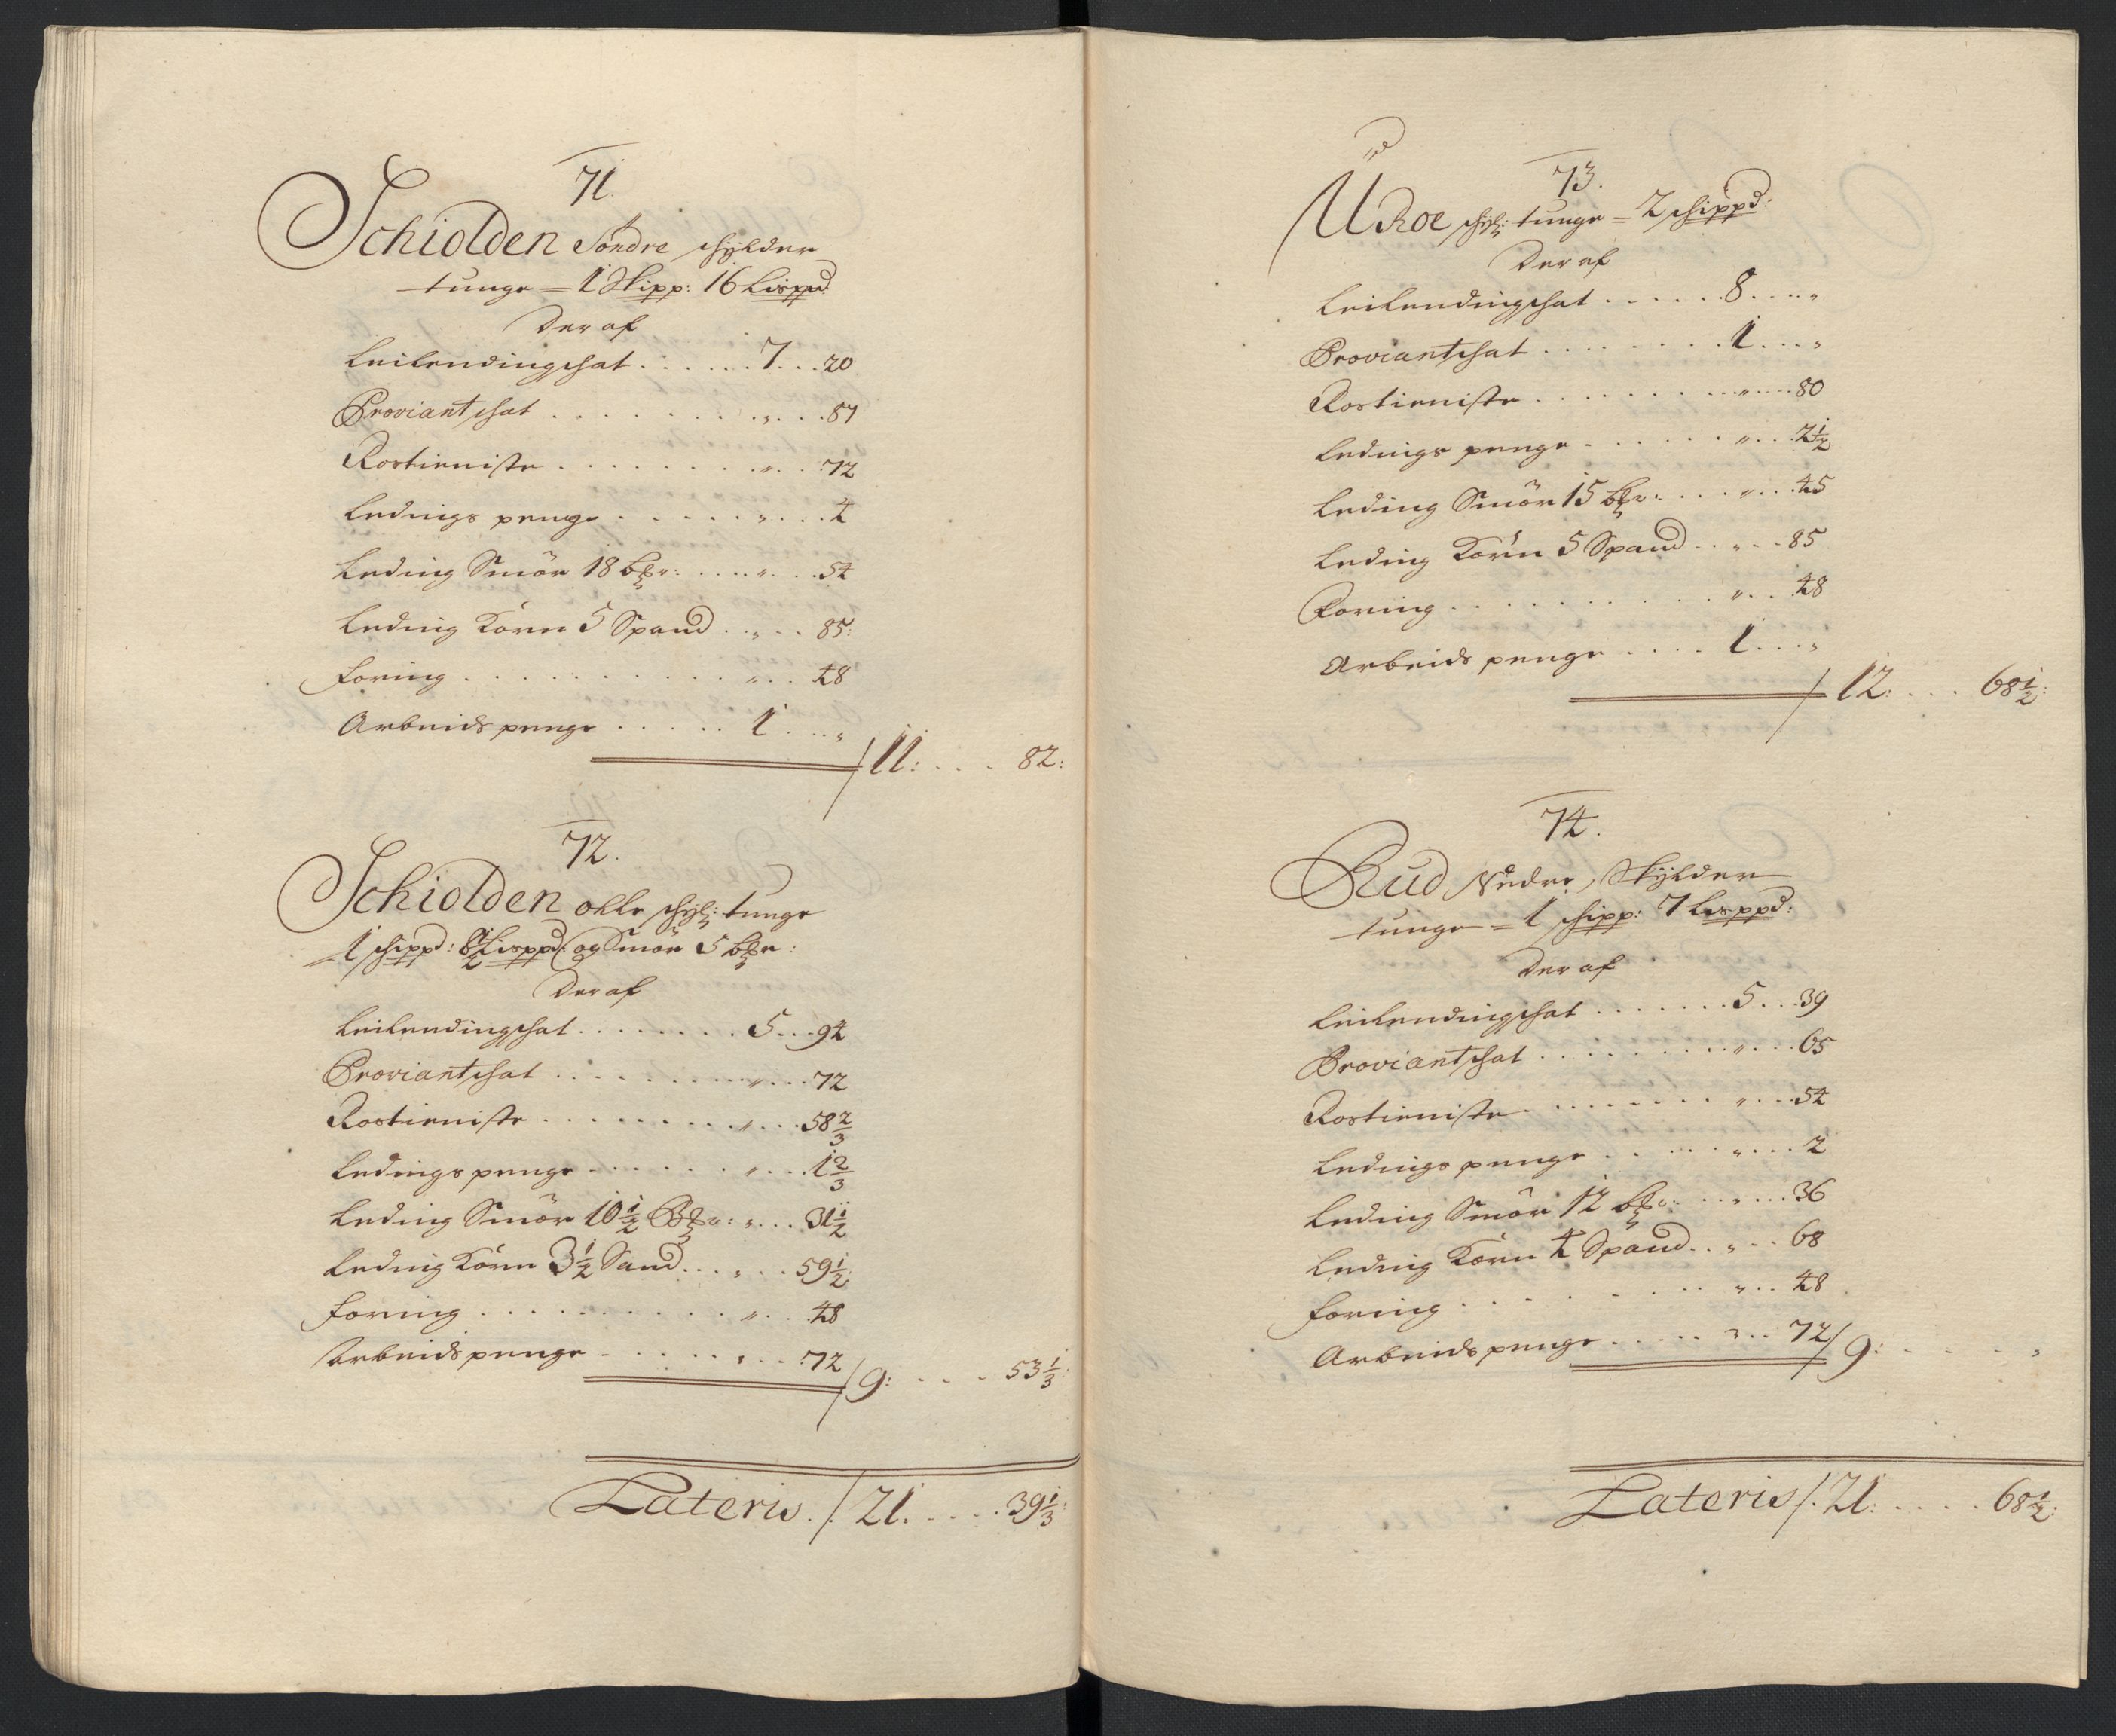 71.
Schiolden Söndre schylder
tunge = 1 Skipp: 16 Lispd
Der af
Leilendingschat . . . . . . 7 . . . 20
Proviantschat . . . . . . . . „ . . . 87
Rostieniste . . . . . . . . „ . . . 72
Ledings penge . . . . . . „ . . . 4
Leding Smör 18 bpr: . . . . „ . . . 54
Leding Korn 5 Spand . . „ . . 85:
Foring . . . . . . . . . . . „ . . . 48
Arbeids penge . . . . . . 1 . . . „
/ 11: . . . . 82:
72.
Schiolden olle schyl: tunge
1 schippd: 8½ Lisppd: og Smör 5 bpr:
Der af
Leilendingschat . . . . . . . . 5 . . . 94
Proviantschat . . . . . . . . . „ . . . 72
Rostieniste . . . . . . . . . „ . . . 58 2/3
Ledings penge . . . . . . „ . . . 1 2/3
Leding Smör 10½ Bpr: „ . . . 31½
Leding Korn 3½ Sand . . . „ . . . 59½
Foring . . . . . . . . . . „ . . . 48
Arbeids penge . . . . . „ . . . 72
/ 9: . . . . 53 1/3:
Lateris . / 21. . . . . . 39 1/3:
73.
Uroe schyl: tunge = 2 schippd:
Der af
Leilendingschat . . . . . . 8 . . . . „
Proviantschat . . . . . . . . 1 . . . „
Rostieniste . . . . . . . . . „ . . . 80
Ledings penge . . . . . . . „ . . . 2½
Leding Smör 15 bpr: . . . . „ . . . 45
Leding Korn 5 Spand . . „ . . 85
Foring . . . . . . . . . . „ . . . 48
Arbeids penge . . . . 1 . . . „
/ 12: . . . 68½:
74.
Rud Nedre, Skylder
tunge = 1 schipp: 7 Lisppd:
Der af
Leilendingschat . . . . . . . 5 . . . 39
Proviantschat . . . . . . . . „ . . . 65
Rostieniste . . . . . . . . „ . . . 54
Ledings penge . . . . . . „ . . . 2
Leding Smör 12 bpr: . . . „ . . . 36
Leding Korn 4 Spand . . „ . . 68
Foring . . . . . . . . . „ . . . 48
Arbeids penge . . . . . „ . . 72
/ 9: . . . . . „
Lateris / . 21: . . . . . 68½: